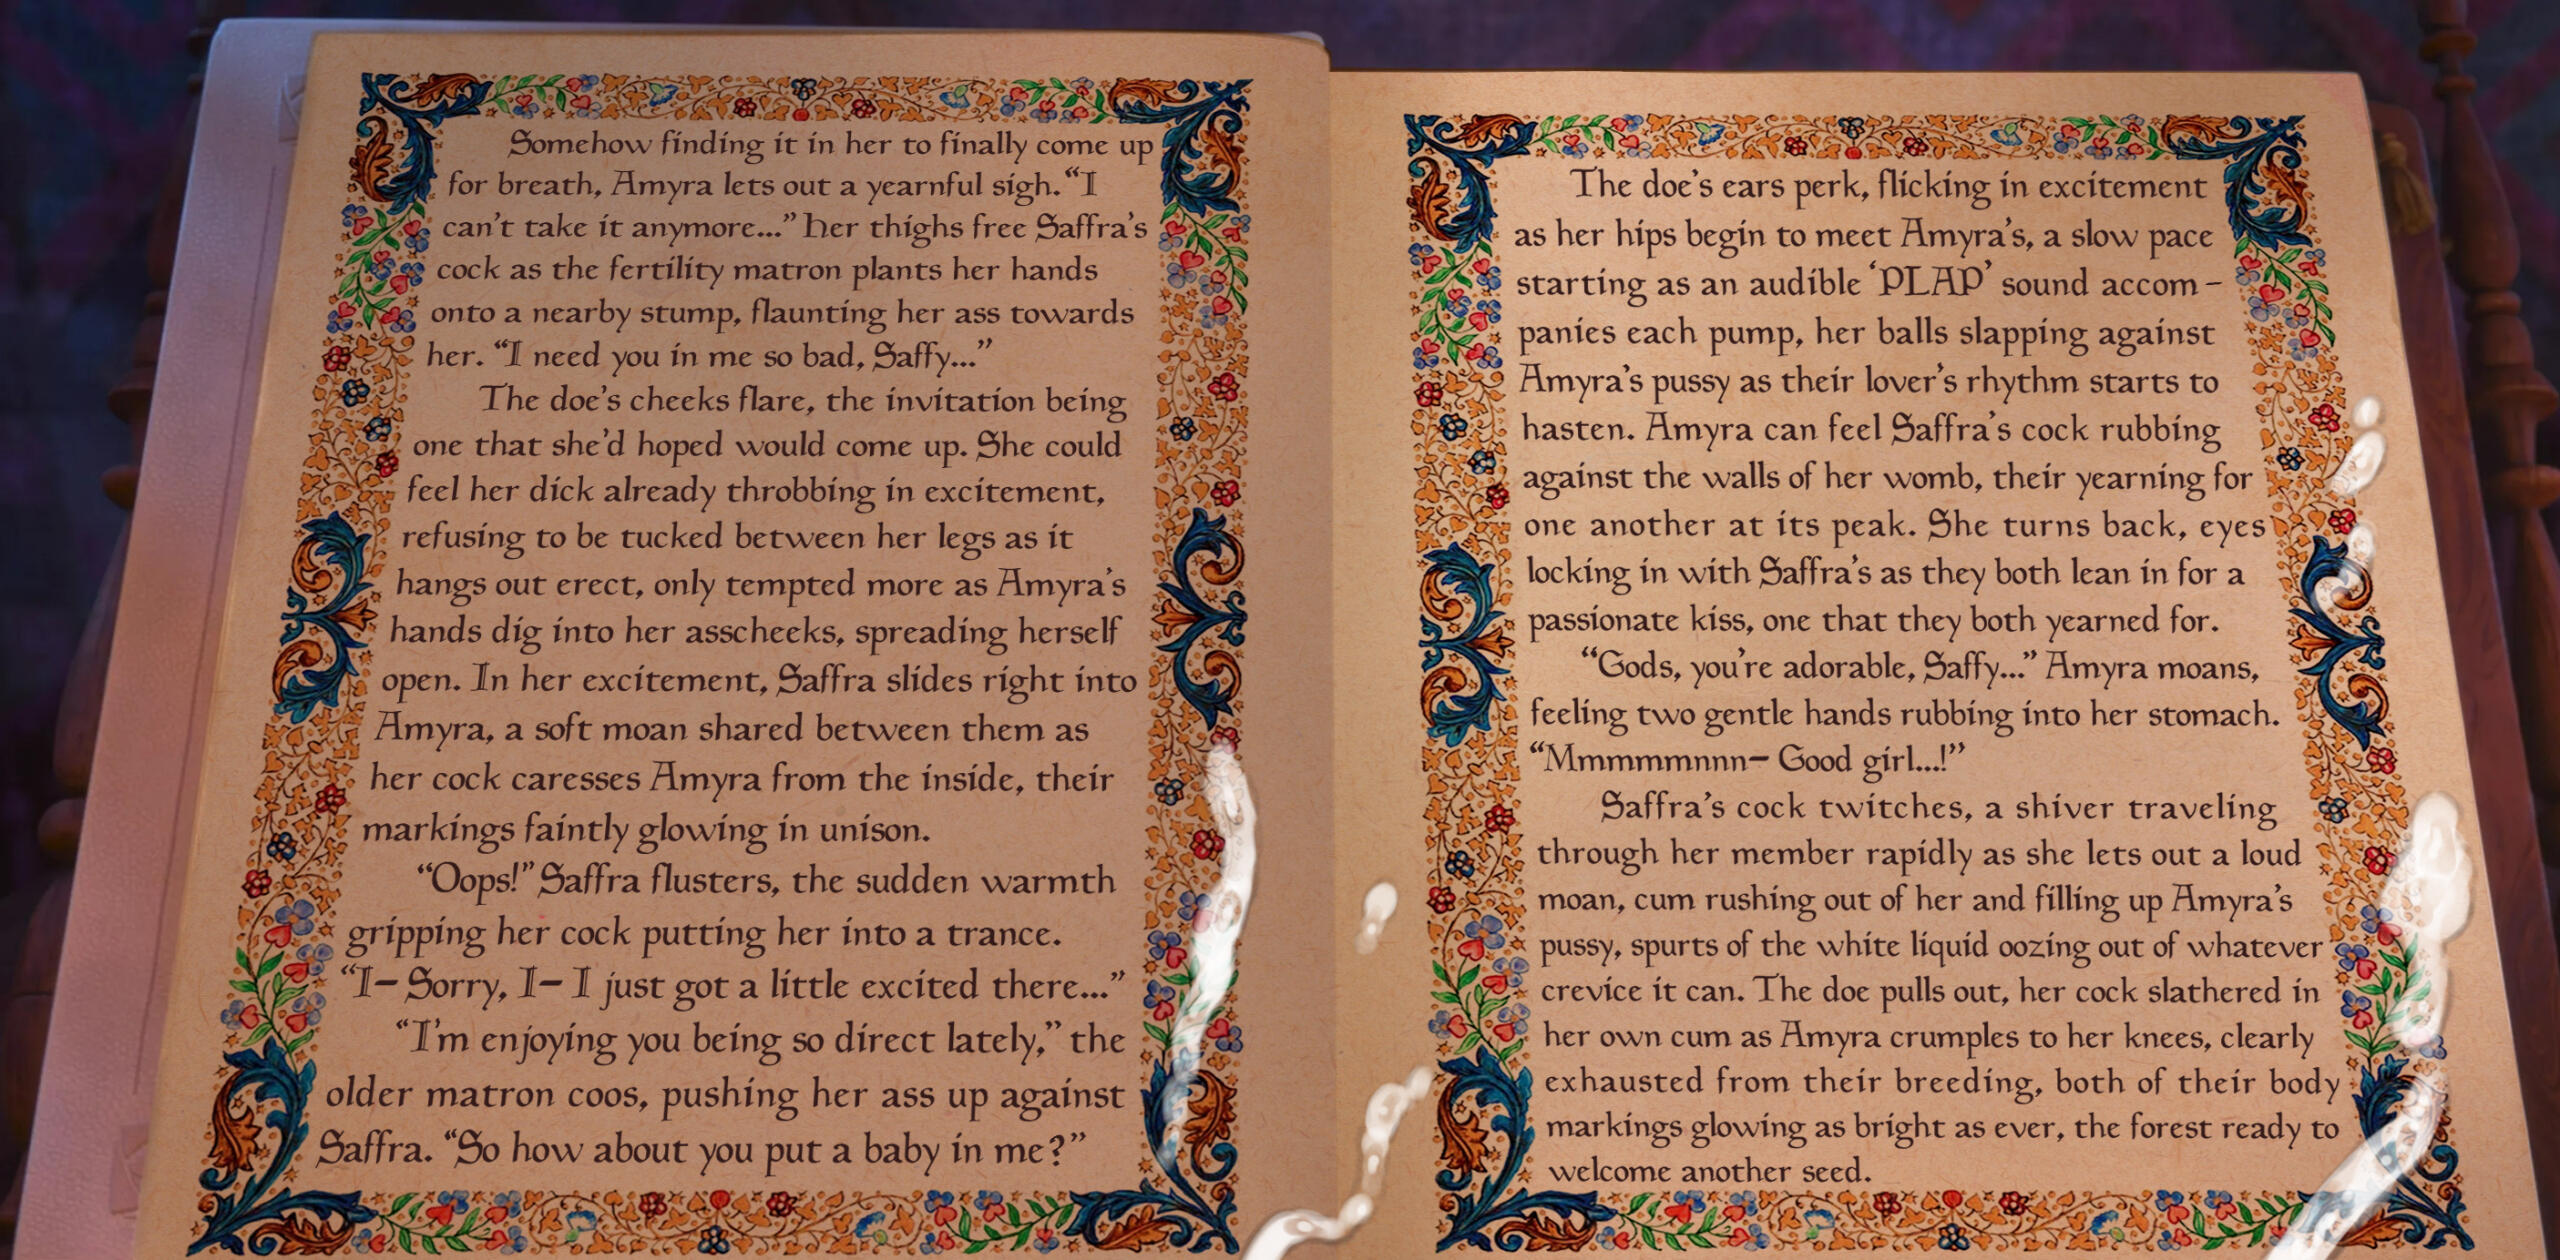 Somehow finding it in her to finally come up
for breath, Amyra lets out a yearnful sigh. “I
can’t take it anymore...” her thighs free Saffra’s
cock as the fertility matron plants her hands
onto a nearby stump, flaunting her ass towards
her. “I need you in me so bad, Saffy...”
The doe’s cheeks flare, the invitation being
one that she’d hoped would come up. She could
feel her dick already throbbing in excitement,
refusing to be tucked between her legs as it
hangs out erect, only tempted more as Amyra’s
hands dig into her asscheeks, spreading herself
open. In her excitement, Saffra slides right into
Amyra, a soft moan shared between them as
her cock caresses Amyra from the inside, their
markings faintly glowing in unison.
“Oops!” Saffra flusters, the sudden warmth
gripping her cock putting her into a trance.
“I– Sorry, I– I just got a little excited there...”
“I’m enjoying you being so direct lately,” the
older matron coos, pushing her ass up against
Saffra. “So how about you put a baby in me?”
The doe’s ears perk, flicking in excitement
as her hips begin to meet Amyra’s, a slow pace
starting as an audible ‘PLAP’ sound accom-
panies each pump, her balls slapping against
Amyra’s pussy as their lover’s rhythm starts to
hasten. Amyra can feel Saffra’s cock rubbing
against the walls of her womb, their yearning for
one another at its peak. She turns back, eyes
locking in with Saffra’s as they both lean in for a
passionate kiss, one that they both yearned for.
“Gods, you’re adorable, Saffy...” Amyra moans,
feeling two gentle hands rubbing into her stomach.
“Mmmmmnnn– Good girl...!”
Saffra’s cock twitches, a shiver traveling
through her member rapidly as she lets out a loud
moan, cum rushing out of her and filling up Amyra’s
pussy, spurts of the white liquid oozing out of whatever
crevice it can. The doe pulls out, her cock slathered in
her own cum as Amyra crumples to her knees, clearly
exhausted from their breeding, both of their body
markings glowing as bright as ever, the forest ready to
welcome another seed.